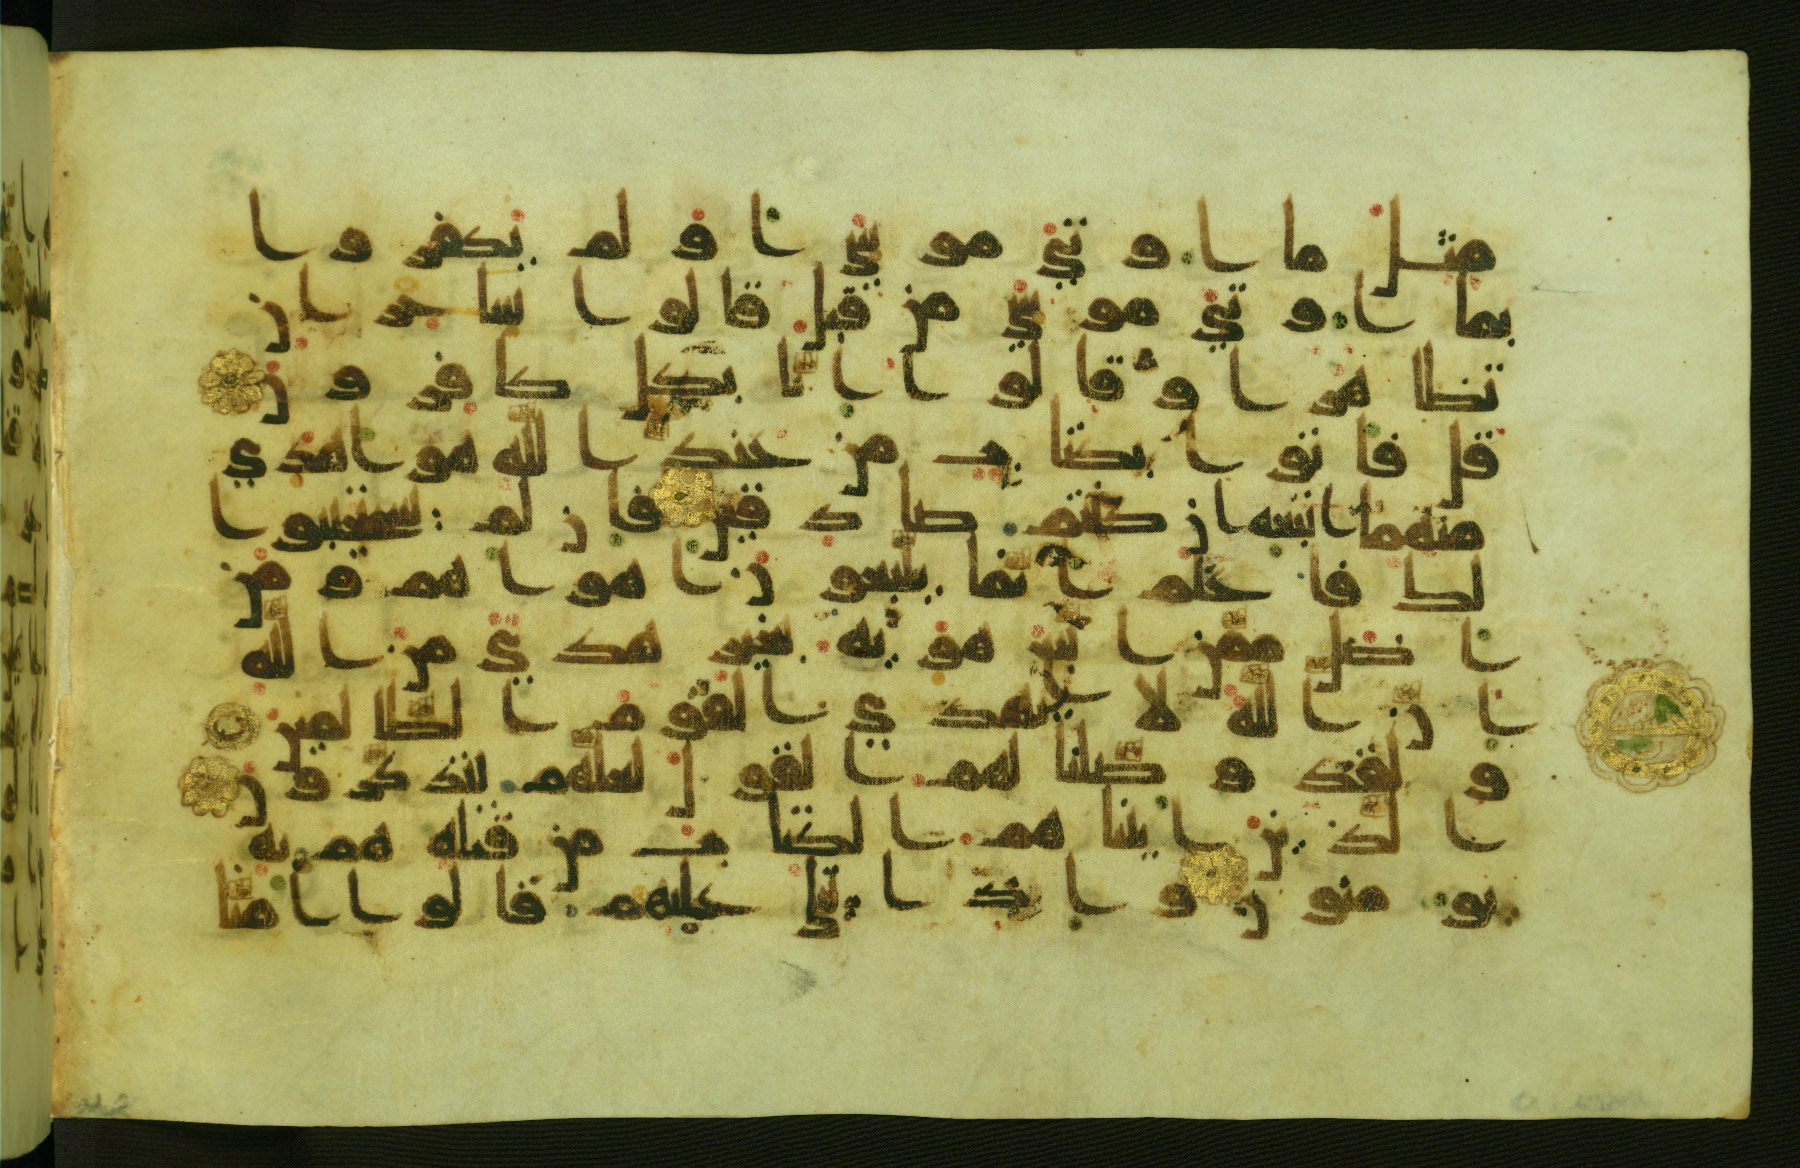 مثل ما اوتي موسي اولم يكفروا
بما اوتي موسي من قبل قالوا ساحران
تظاهرا وقالوا انا بكل كافرون
قل فاتوا بكتاب من عند الله هو اهدي
منهما اتبعه ان كنتم صادقين فان لم يستجيبوا
لك فاعلم انما يتبعون اهواهم ومن
اضل ممن اتبع هويه بغير هدي من الله
ان الله لا يهدي القوم الظالمين
ولقد وصلنا لهم القول لعلهم يتذكرون
الذين اتيناهم الكتاب من قبله هم به
يومنون واذا يتلي عليهم قالوا امنا